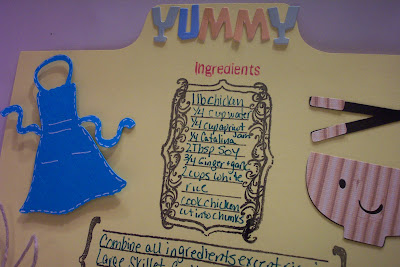 YUMMY
Ingredients
1 lb chicken
1/4 cup water
1/4 cup apricot Jam
1/4 Catalina
2 Tbsp Soy
3/4 Ginger + garlic
2 cups white
rice
cook chicken
cut into chunks
Combine all ingredients except
Large Skillet